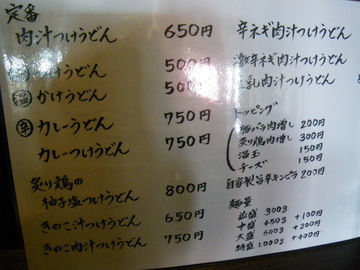 定番
肉汁つけうどん 650円
けうどん 500円
温 かけうどん 500円
辛 カレーうどん 750円
カレーつけうどん 750円
炙り鶏の
柚子塩つけうどん 800円
きのこ汁つけうどん 650円
きのこ肉汁つけうどん 750円
辛ネギ肉汁つけうどん
激辛ネギ肉汁つけうどん
豆乳肉汁つけうどん
トッピング
豚バラ肉増し 200円
炙り鶏肉増し 300円
温玉 150円
チーズ 150円
自家製旨辛キンピラ 200円
麺量
並盛 300g
中盛 450g +100円
大盛 600g +200円
特盛 1000g +400円